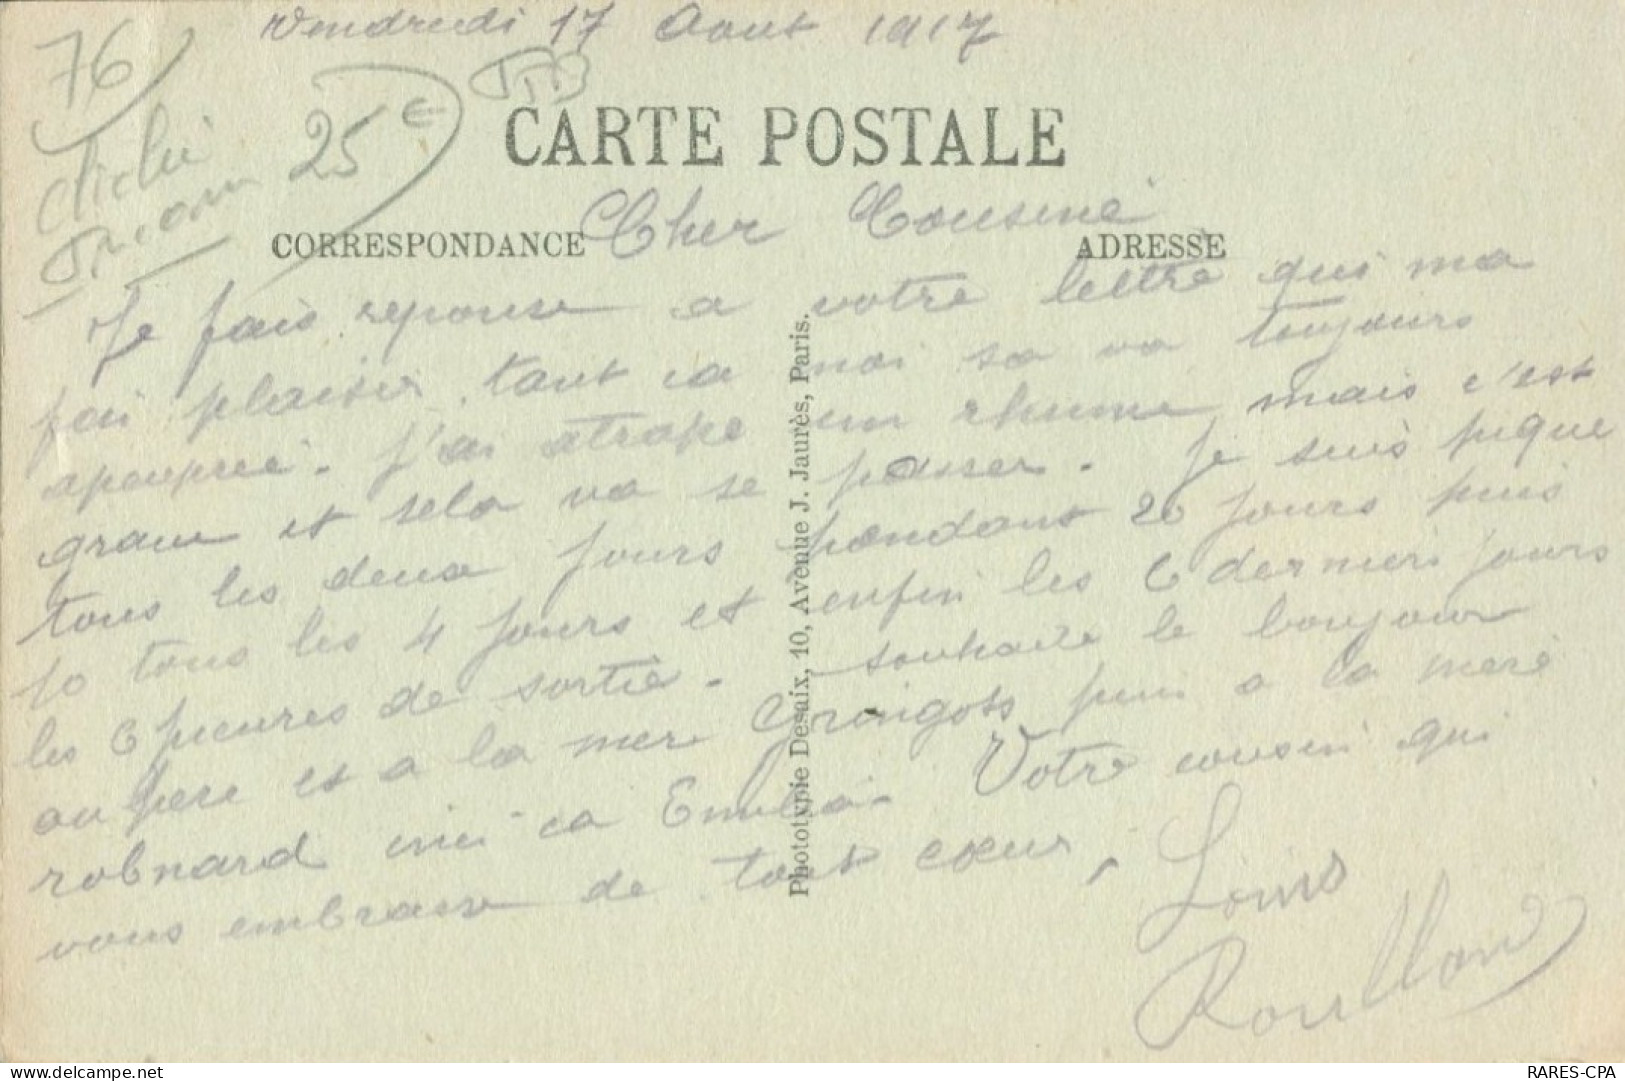 Vendredi 17 Aout 1917
76
25 €
cliché
CARTE POSTALE
CORRESPONDANCE
ADRESSE
Cher Cousine
Je fais reponse a votre lettre qui ma
fai plaisir, tant ca moi sa va toujours
apeuprée. J'ai atrapé un rhume mais c'est
grave et sela va se passer. Je suis pique
tous les deux jours pendant 20 jours puis
10 tous les 4 jours et enfin les 6 derniers jours
les 6 pieures de sortie. souhaite le bonjour
au pere et a la mere Gringots puis a la mere
robnard ini ca Emelia. Votre cousin qui
vous embrasse de tout cœur,
Louis
Roullon
Phototypie Desaix, 10, Avenue J. Jaurès, Paris.
www.delcampe.net
RARES-CPA